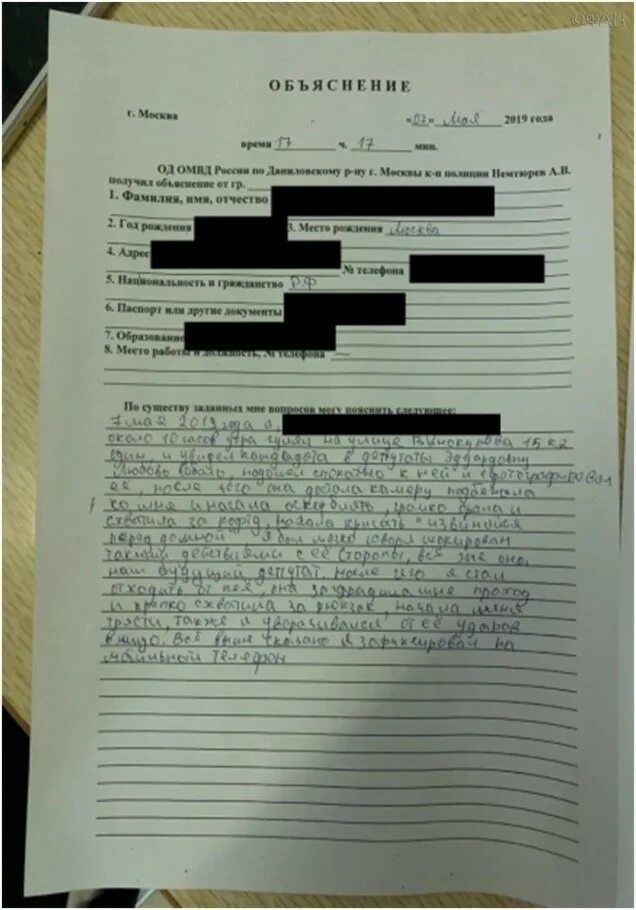 ФАН
ОБЪЯСНЕНИЕ
г. Москва «07» Мая 2019 года
время 17 ч. 17 мин.
ОД ОМВД России по Даниловскому р-ну г. Москвы к-н полиции Немтюрев А.В.
получил объяснение от гр.
1. Фамилия, имя, отчество
2. Год рождения 3. Место рождения Москва
4. Адрес № телефона
5. Национальность и гражданство РФ
6. Паспорт или другие документы
7. Образование
8. Место работы и должность, № телефона —
По существу заданных мне вопросов могу пояснить следующее:
7 мая 2019 года я,
около 10 часов утра гулял на улице Винокурова 15 к2
один, и увидел кандидата в депутаты Эдуардовну
Любовь Соболь, подошел спокойно к ней и сфотографировал
её, после чего она достала камеру подбежала
ко мне и начала оскорблять, громко орала и
схватила за кофту, начала кричать "извинийся
перед домной" я был мягко говоря шокирован
такими действиями с её стороны, всё же она,
наш будущий депутат. После чего я стал
отходить от неё, она загродила мне проход
и крепко схватила за рюкзак, начала меня
трясти, также я уворачивался от её ударов
в лицо. Всё выше сказано я зафиксировал на
мобильный телефон